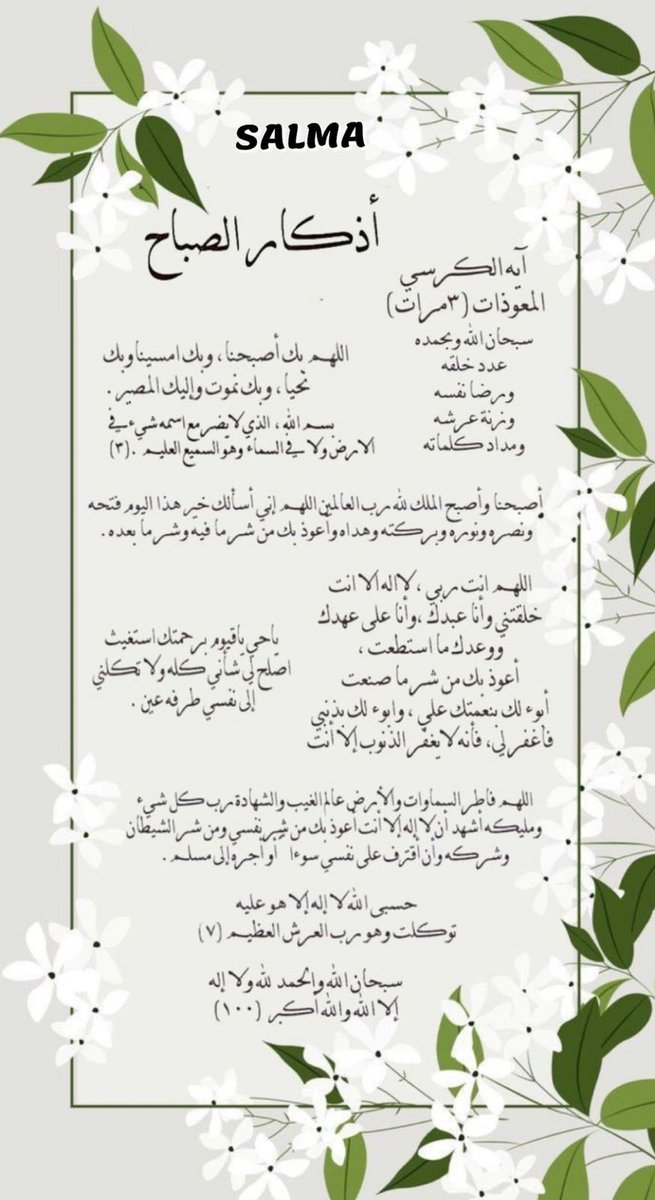 SALMA
أذكار الصباح
آيه الكرسي
المعوذات (٣مرات)
سبحان الله وبحمده
عدد خلقه
ورضا نفسه
وزنة عرشه
ومداد كلماته
اللهم بك أصبحنا ، وبك امسينا وبك
نحيا ، وبك نموت وإليك المصير .
بسم الله ، الذي لا يضر مع اسمه شيء في
الارض ولا في السماء وهو السميع العليم . (٣)
أصبحنا وأصبح الملك لله رب العالمين اللهم إني أسألك خير هذا اليوم فتحه
ونصره ونوره وبركته وهداه وأعوذ بك من شر ما فيه وشر ما بعده .
اللهم انت ربي ، لا اله الا انت
خلقتني وأنا عبدك ، وأنا على عهدك
ووعدك ما استطعت ،
أعوذ بك من شر ما صنعت
أبوء لك بنعمتك علي ، وابوء لك بذنبي
فاغفر لي، فأنه لا يغفر الذنوب إلا أنت
ياحي ياقيوم برحمتك استغيث
اصلح لي شأني كله ولا تكلني
إلى نفسي طرفه عين .
اللهم فاطر السماوات والأرض عالم الغيب والشهادة رب كل شيء
ومليكه أشهد أن لا إله إلا انت أعوذ بك من شر نفسي ومن شر الشيطان
وشركه وان اقترف على نفسي سوءا أو أجره إلى مسلم .
حسبي الله لا إله إلا هو عليه
توكلت وهو رب العرش العظيم (٧)
سبحان الله والحمد لله ولا إله
إلا الله والله أكبر (١٠٠)